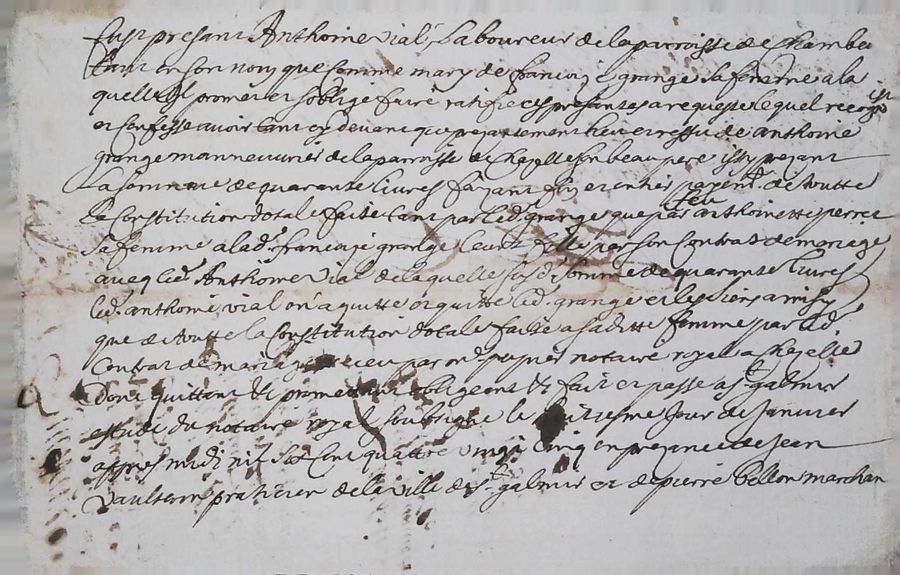 fust presant Anthoine vial, Laboureur de la parroisse de Chambeu
tant en son nom que comme mary de françoize grange sa femme a la
quelle il promet et soblige faire ratifie ces presantes a requeste lequel recog
ist
et confesse avoir tant cy devant que presantement heu et ressu de anthoine
grange manneuvrier de la parroisse de Chazelles son beau pere issy prezant
La somme de quarante livres fayant fin et entier payemt. de toutte
feu
la Constitution dotale faite tant par led. grange que par anthoinette perret
sa femme a lad. françoize grange leur fille par son contrat de mariage
avecq led. Anthoine vial de laquelle susd. somme de quarante livres
led. anthoine vial on a quitte et quitte led. grange et les siens ainsy
que de toutte la Constitution dotale faite a saditte femme par led.
Contrat de mariage receu par me. notaire royal a Chazelles
Dont quittant &c promettant obligeant &c fait et passe a st. galmier
estude du notaire royal soubsigne le jour de Janvier
appres midi mil six Cent quattre vingt cinq en prezance de Jean
praticien de la ville de st. galmier et de pierre bellon marchan